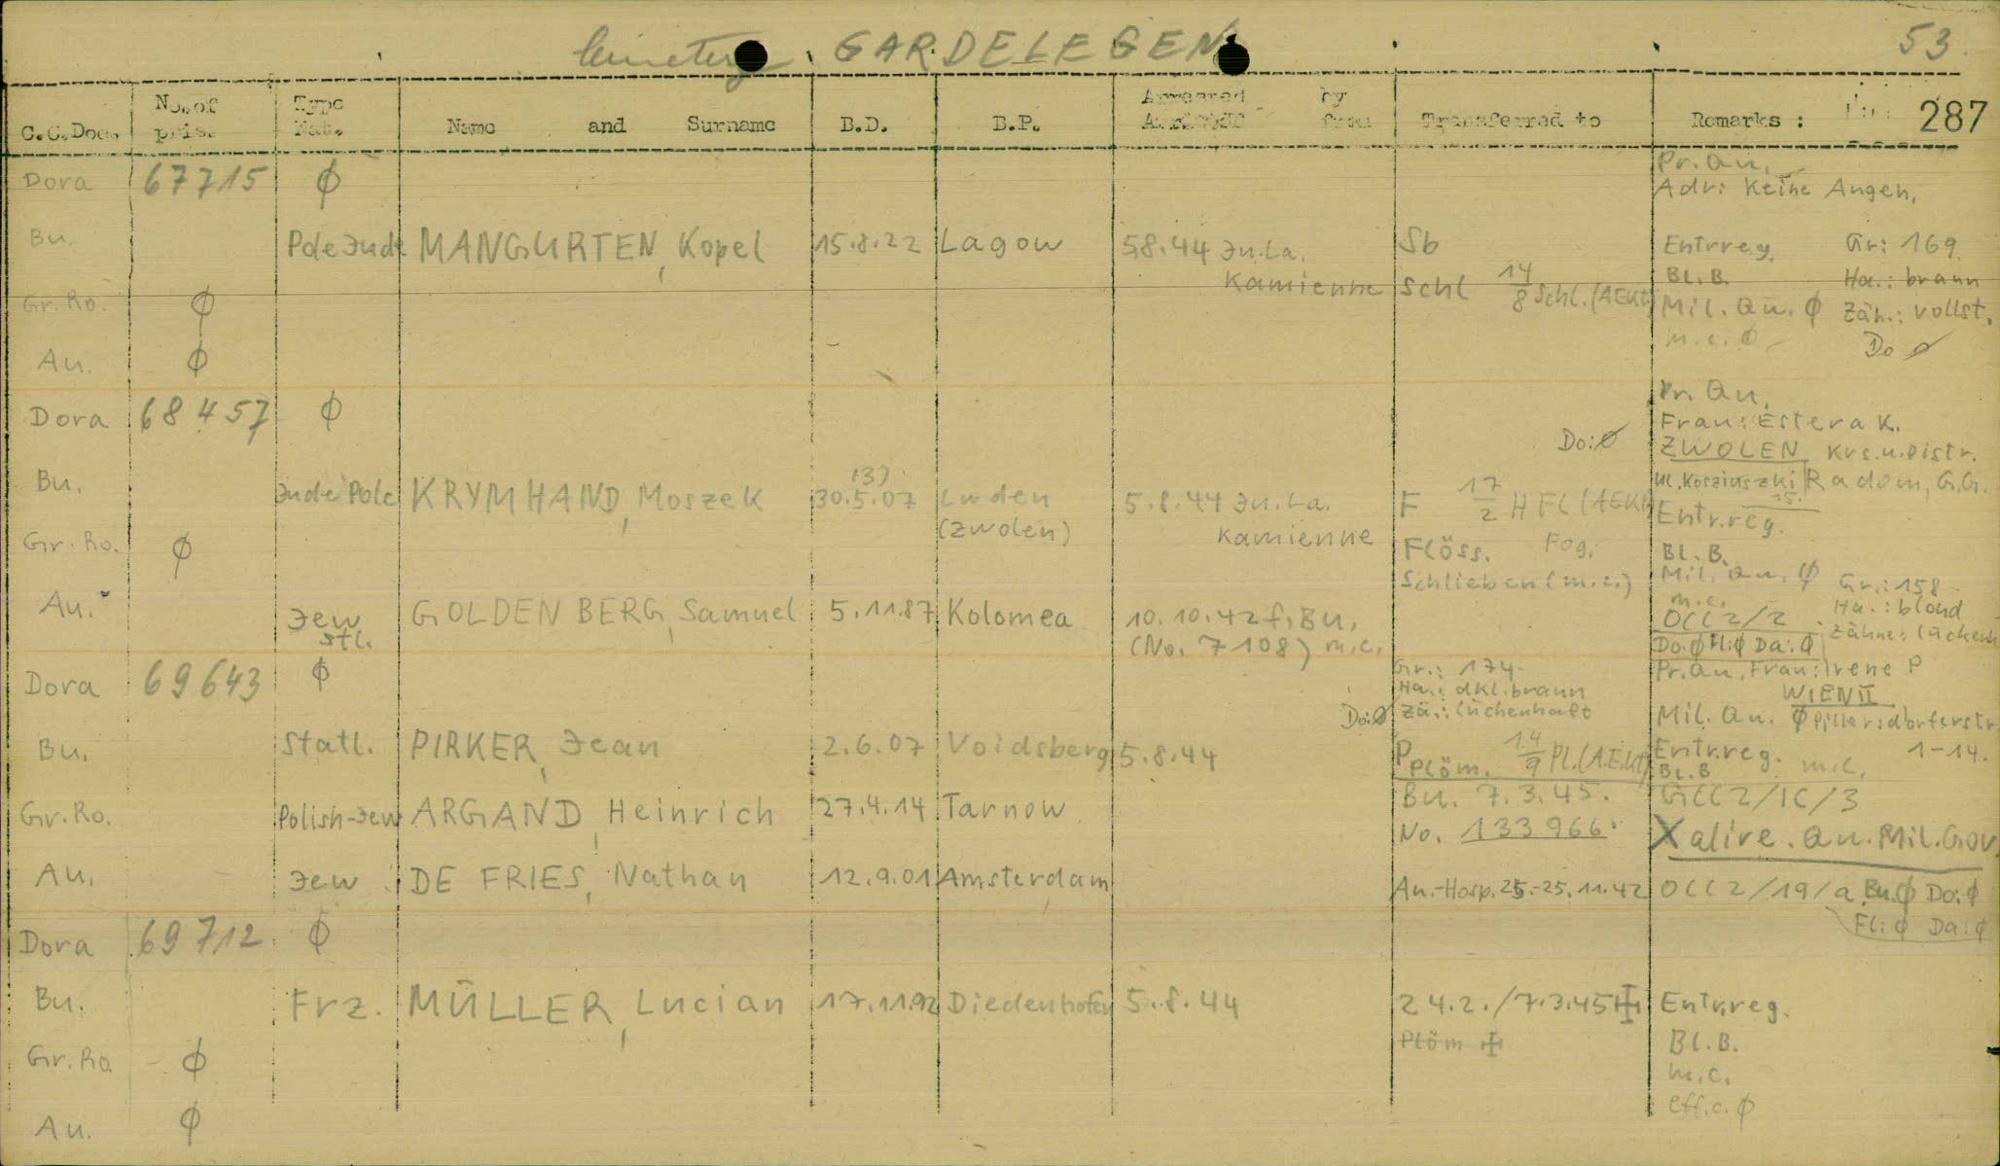 Cemetery GARDELEGEN 53
C.C.Doc. No. of pris. Type Nat. Name and Surname B.D. B.P. Arrested by Arrived from Transferred to Remarks : 287
Dora 67715 ϕ Pr. Qu.
Adr: Keine Angeh.
Bu. Pole Jude MANGURTEN, Kopel 15.8.22 Lagow 5.8.44 Ju.La. Sb Entrreg. Gr: 169
Kamienne Schl 14/8 Schl. (AEKt) Bl.B. Ha.: braun
Gr. Ro. ϕ Mil. Qu. ϕ Zäh.: vollst.
m.c. ϕ Do ϕ
Au. ϕ
Dora 68457 ϕ Pr. Qu.
Frau: Estera K.
Do: ϕ ZWOLEN, Krs.u.Distr.
Bu. Jude Pole KRYMHAND, Moszek 30.5.07 (3) Luden 5.8.44 Ju.La. F 17/2 H FL (AEKt) ul. Kosziuszki 15. Radom, G.G.
(Zwolen) Kamienne Entr.reg.
Gr. Ro. ϕ Flöss. Fog. Bl. B.
Schlieben (m.c.) Mil. Qu. ϕ Gr.: 158
Au. Jew stl. GOLDENBERG, Samuel 5.11.87 Kolomea 10.10.42 f. Bu. m.c. Ha.: blond
(No. 7108) m.c. OCC 2/2 Zähne: lückenh.
Do. ϕ Fl: ϕ Da: ϕ
Dora 69643 ϕ Gr.: 174 Pr. Qu. Frau: Irene P
Ha.: dkl. braun WIEN II
Do: ϕ Zä.: lückenhaft Mil. Qu. ϕ Pillersdorferstr.
Bu. Statl. PIRKER, Jean 2.6.07 Voidsberg 5.8.44 P Plöm. 14/9 Pl. (A.E.Kt) Entr.reg. 1-14.
Bl. B m.c.
Gr. Ro. Polish-Jew ARGAND, Heinrich 27.4.14 Tarnow Bu. 7.3.45. GCC 2/IC/3
No. 133966. X alive. Qu. Mil. Gov.
Au. Jew DE FRIES, Nathan 12.9.01 Amsterdam Au.-Hosp. 25.-25.11.42 OCC 2/19/a Bu. ϕ Do: ϕ
Fl: ϕ Da: ϕ
Dora 69712 ϕ
Bu. Frz. MÜLLER, Lucian 17.11.92 Diedenhofen 5.8.44 24.2./7.3.45 ✠ Entr.reg.
Plöm ✠ Bl. B.
Gr. Ro ϕ m.c.
eff.c. ϕ
Au. ϕ